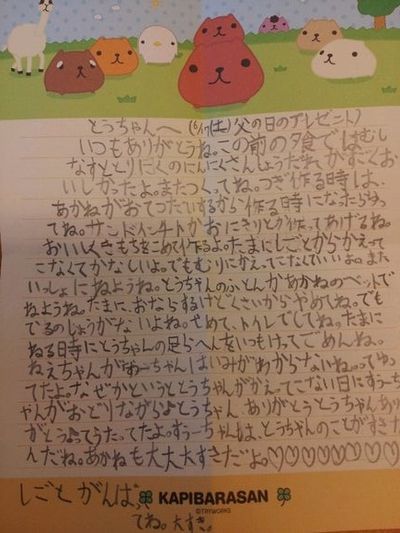 とうちゃんへ(6/17(土)父の日のプレゼント)
いつもありがとうね。この前の夕食ではむし
なすととりにくのにんにくさんしょうだれがすごくお
いしかったよ。またつくってね。つぎ作る時は、
あかねがおてつだいするから作る時になったらゆっ
てね。サンドイッチトかおにぎりとか作ってあげるね。
おいしくきもちをこめて作るよ。たまにしごとからかえって
こなくてかなしいよ。でもむりにかえってこなくていいよ。また
いっしょにねようね。とうちゃんのふとんかあかねのベットで
ねようね。たまに、おならするけどくさいからやめてね。でも
でるのしょうがないよね。せめて、トイレでしてね。たまに
ねる時にとうちゃんの足らへんをいつもけってごめんね。
ねえちゃんがすーちゃんはいみがわからないね。ってゆっ
てたよ。なぜかというととうちゃんがかえってこない日にすーち
ゃんがおどりながら♪とうちゃん、ありがとうとうちゃんあり
がとう♪ってうたってたよ。すーちゃんは、とうちゃんのことがすきな
んだね。あかねも大大大すきだよ。♡♡♡♡♡♡♡♡♡
しごとがんばっ
てね。大すき。
KAPIBARASAN
©TRYWORKS